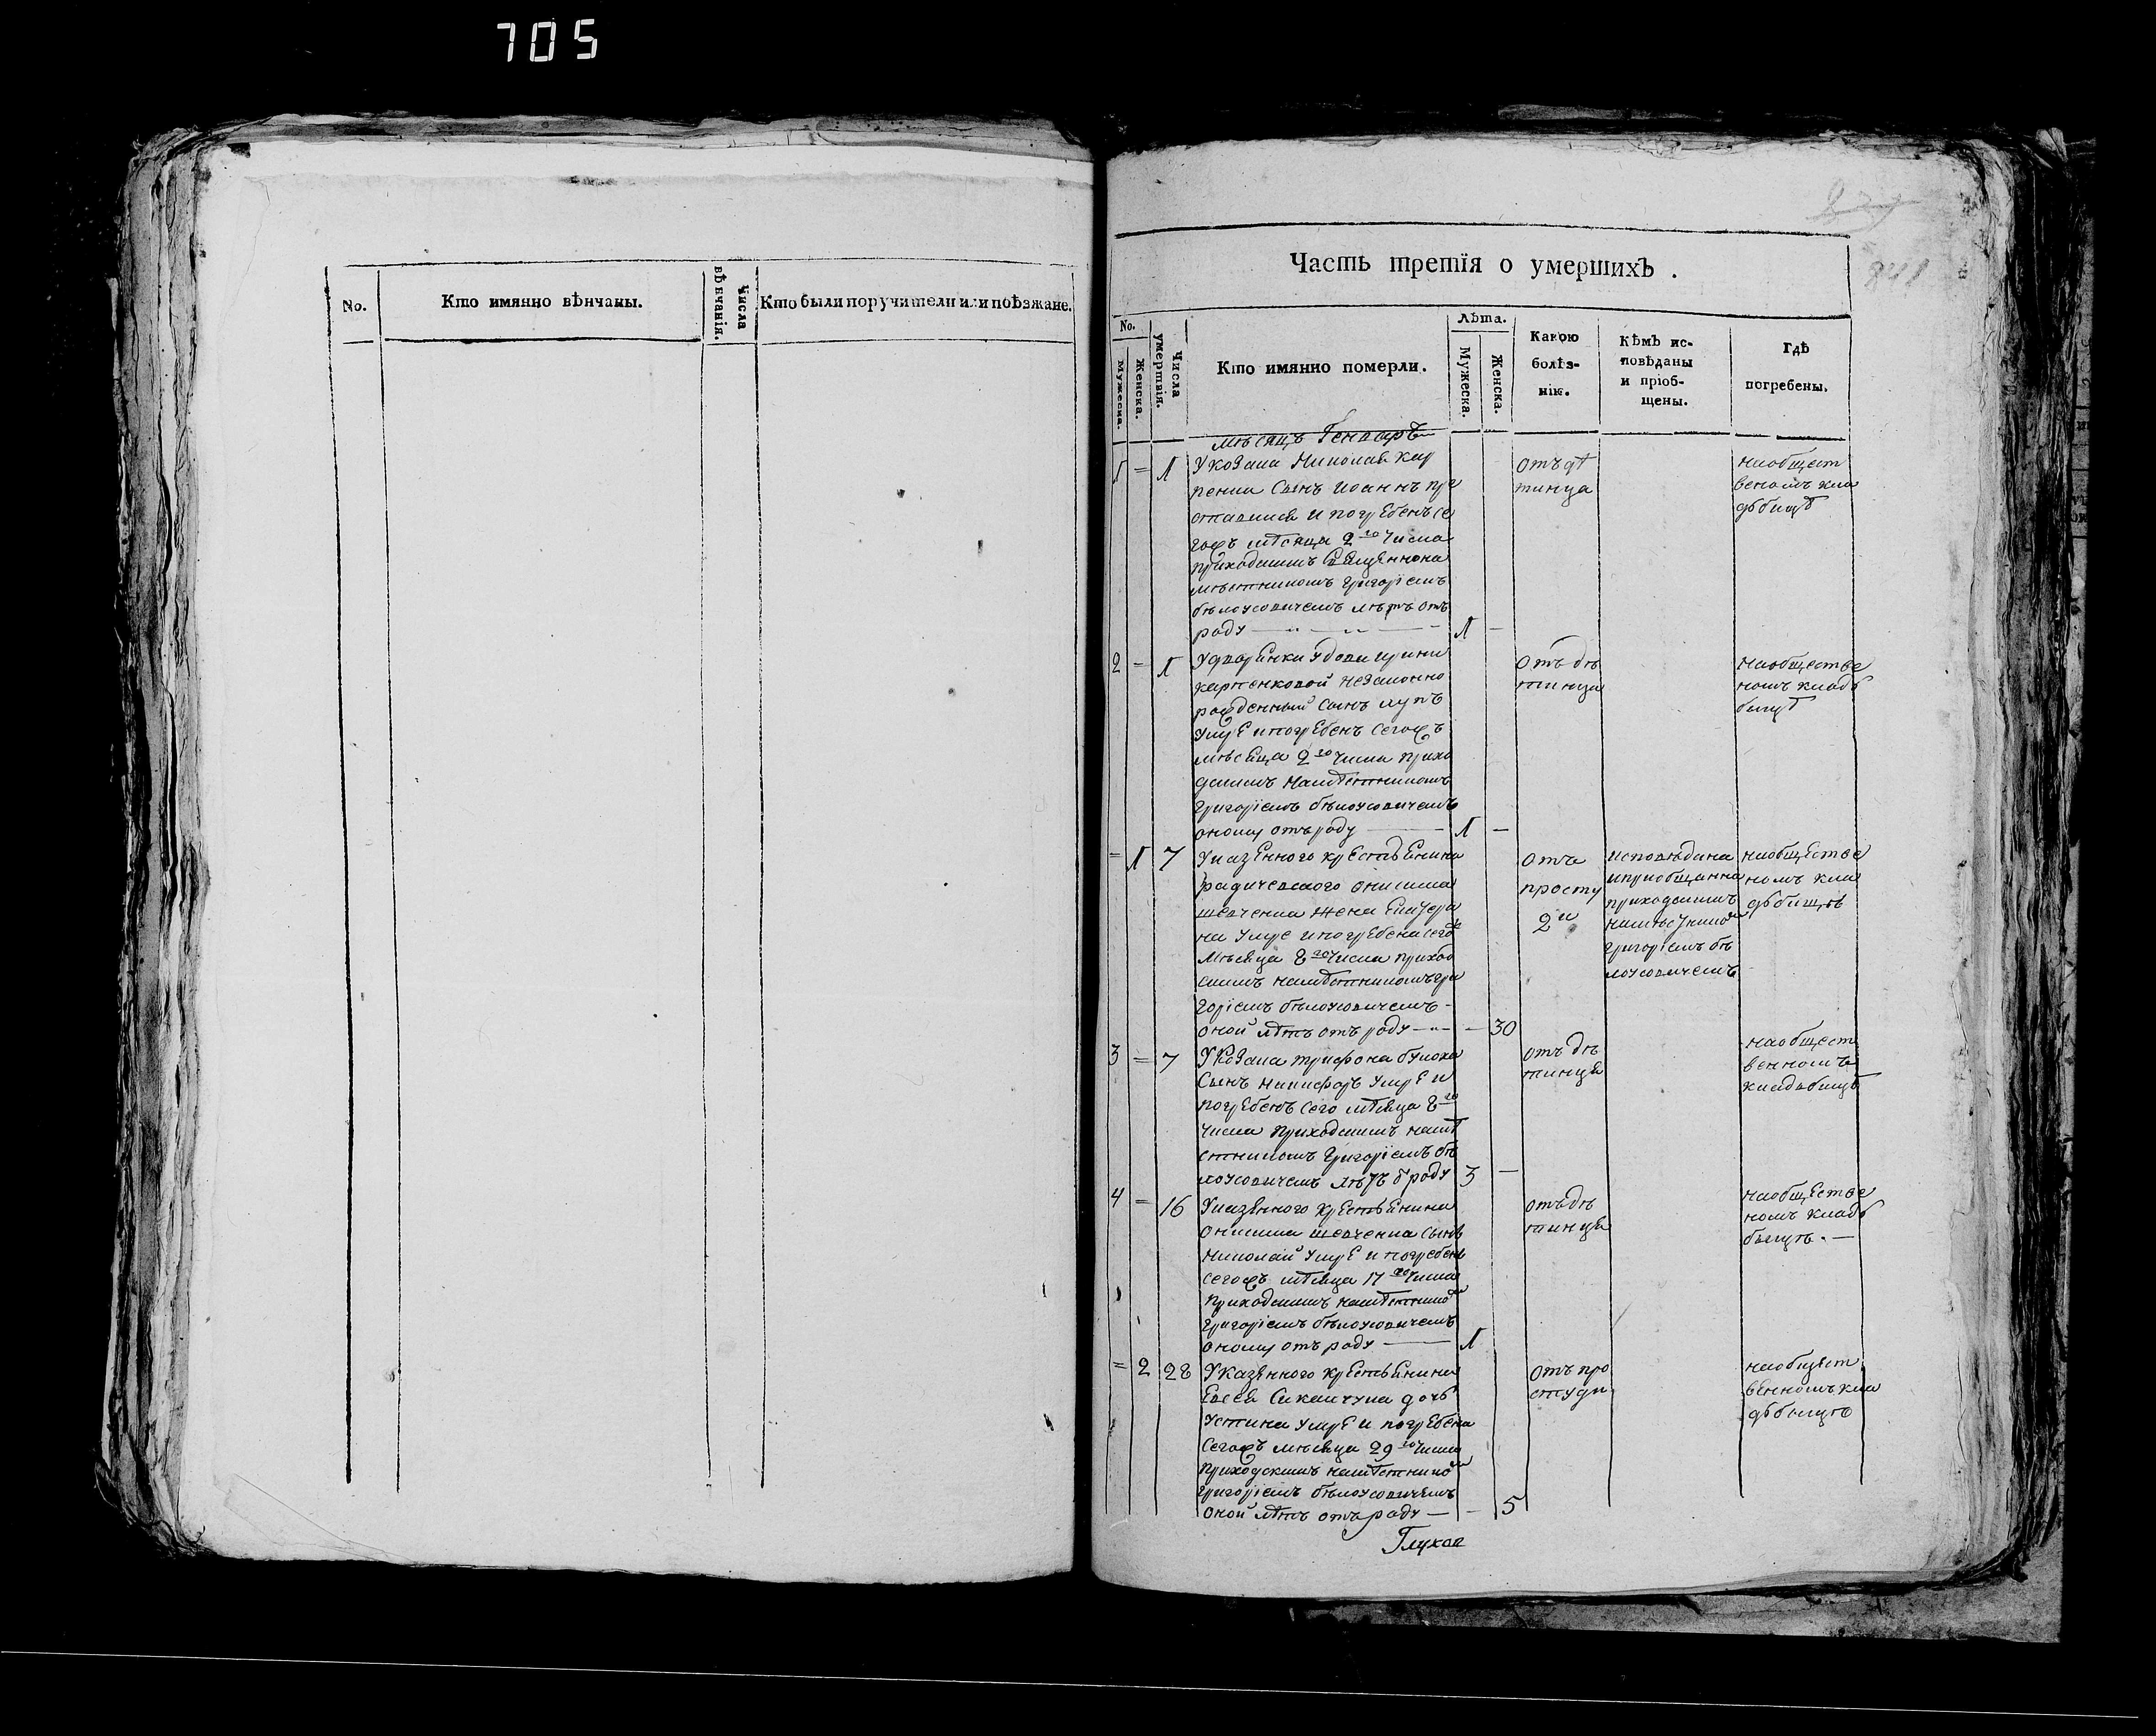 705
No.
Кто имянно вѣнчаны.
Числа
вѣнчанія.
Кто были поручители или поѣзжане.
841
Часть третія о умершихъ .
No.
Мужеска.
Женска.
Числа
умертвія.
Кто имянно померли.
Лѣта.
Мужеска.
Женска.
Какою
болѣз-
нію.
Кѣмъ ис-
повѣданы
и пріоб-
щены.
Гдѣ
погребены.
мѣсяцъ Генварь
1 = 1
У козака Николая Кар
пенка сынъ Иоаннъ пре
ставился и погребенъ се
гожъ мѣсяца 2го числа
приходскимъ священнона
мѣстникомъ Григоріемъ
Бѣлоусовичемъ лѣтъ отъ
роду 1 -
отъ дѣ
тинца
на общест
веномъ кла
дбищѣ
2 - 1
У дворянки удови Ирини
Карпенковой незаконно
рожденный сынъ Лупъ
умре и погребенъ сегожъ
мѣсяца 2го числа прихо
дскимъ намѣстникомъ
Григоріемъ Бѣлоусовичемъ
оному отъ роду 1 -
отъ дѣ
тинца
на обществе
номъ кладб
бищѣ
= 1 7
У казенного крестьянина
Радичевского Онисима
Шевченка жена Екатери
на умре и погребена сегожъ
мѣсяца 8го числа приход
скимъ намѣстникомъ Гри
горіемъ Бѣлоусовичемъ -
оной лѣтъ отъ роду - 30
отъ
просту
ди
исповѣдана
и приобщенна
приходскимъ
намѣстником
Григоріемъ Бѣ
лоусовичемъ
на обществе
номъ кла
дбищѣ
3 = 7
У козака Трифона
сынъ Никифоръ умре и
погребенъ сего мѣсяца 8го
числа приходскимъ намѣ
стникомъ Григоріемъ Бѣ
лоусовичемъ лѣтъ ѿ роду 3 -
отъ дѣ
тинца
на общест
венномъ
кладбищѣ
4 = 16
У казенного крестьянина
Онисима Шевченка сынъ
Николай умре и погребенъ
сегожъ мѣсяца 17го числа
приходскимъ намѣстником
Григоріемъ Бѣлоусовичемъ
оному отъ роду 1
отъ дѣ
тинца
на обществе
номъ кладб
бищѣ. -
= 2 28
У казенного крестьянина
Евсея дочь
Устина умре и погребена
сегожъ мѣсяца 29го числа
приходскимъ намѣстником
Григоріемъ Бѣлоусовичемъ
оной лѣтъ отъ роду - 5
отъ про
студи
на общест
венномъ кла
дбищѣ